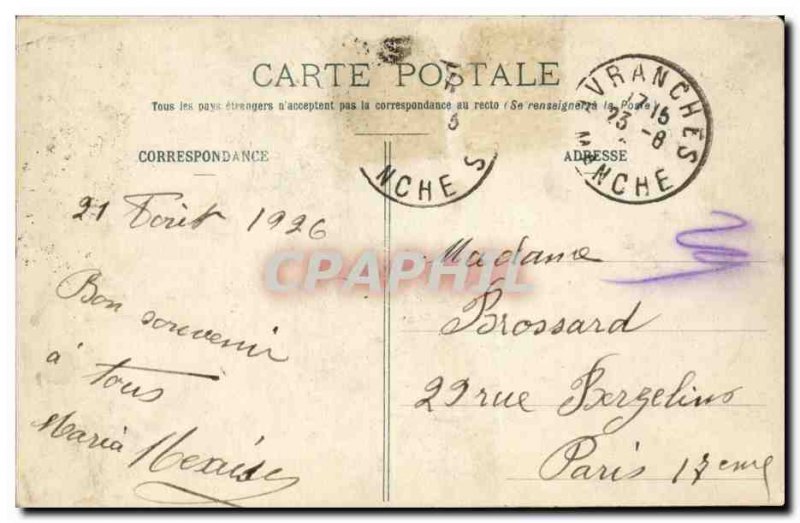 CARTE POSTALE
Tous les pays étrangers n'acceptent pas la correspondance au recto (Se renseigner à la Poste)
CORRESPONDANCE
ADRESSE
VRANCHES
17 15
23 -8
NCHE
NCHE S
21 1926
Bon souvenir
à tous
Maria
Madame
Brossard
29 rue
Paris 17eme
CPAPHIL